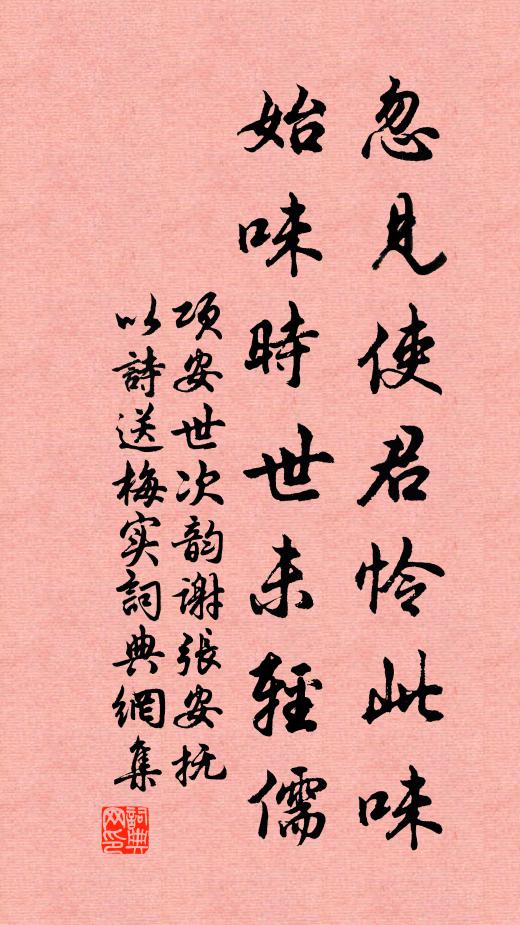 忽見使君怜此味
始味時世未輕儒
项安世次韵謝張安抚
以詩送梅实詞典網集
詞典
网印